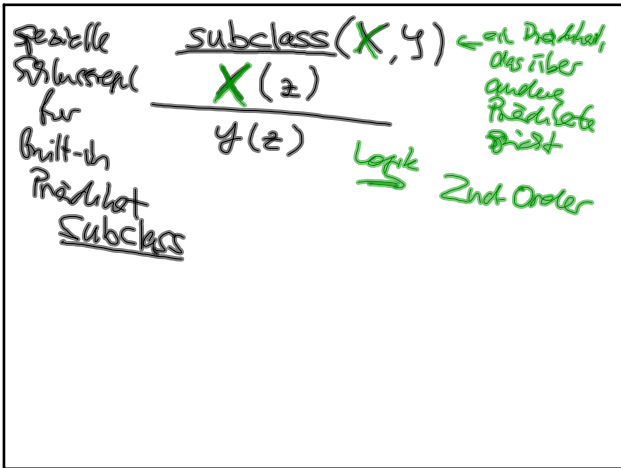 spezielle
Schlussregel
für
Built-in
Prädikat
Subclass
subclass(X, y)
X(z)
y(z)
← ein Prädikat,
das über
andere
Prädikate
spricht
Logik
2nd-Order